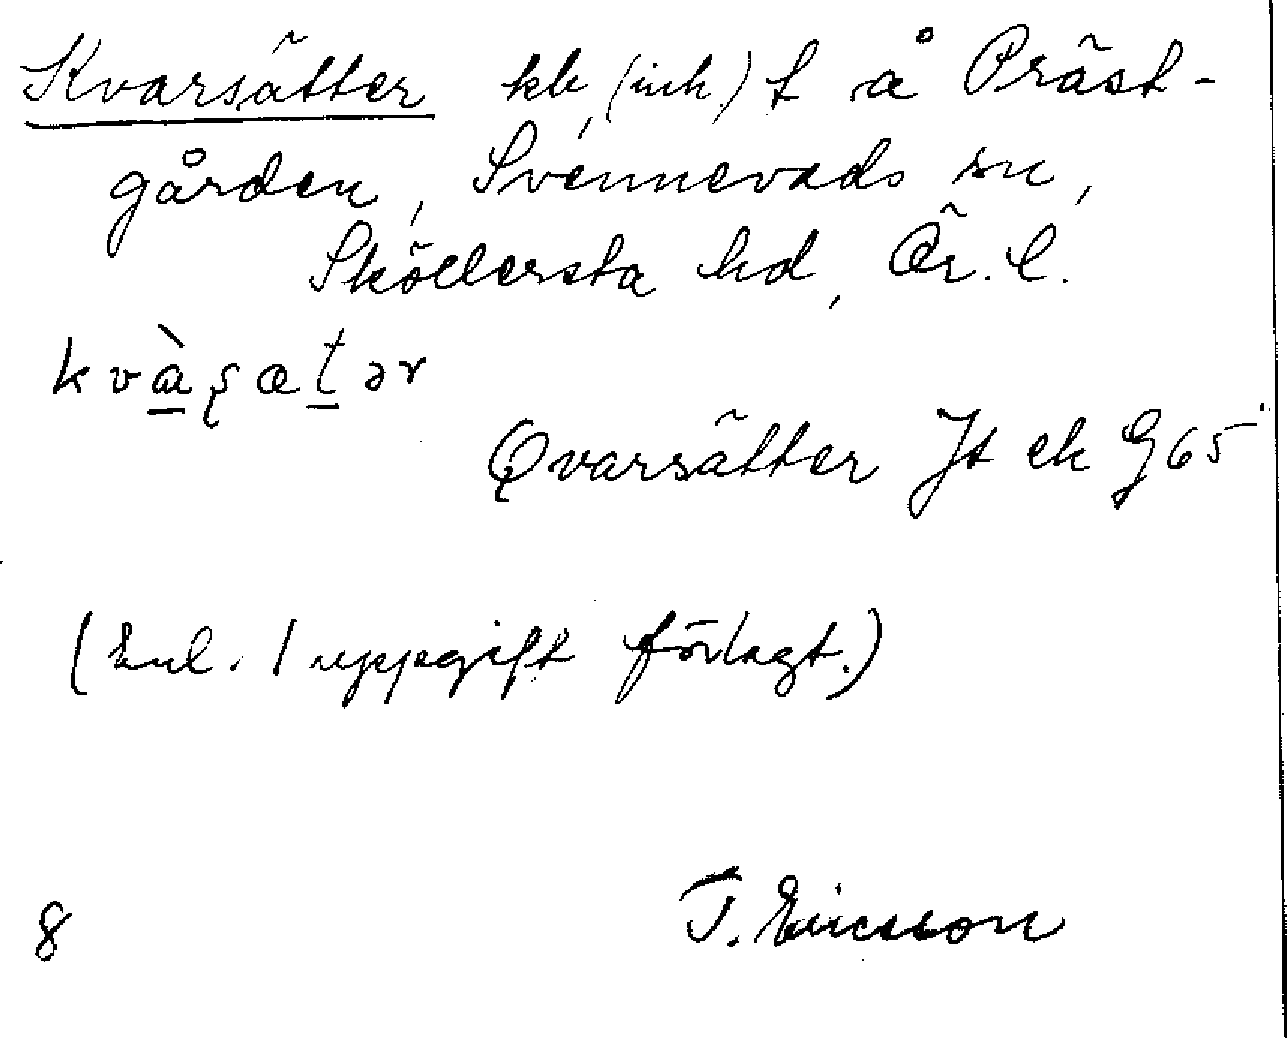 Kvarsätter kb, (ink) t å Präst-
gården, Svennevads sn,
Sköllersta hd, Ör. l.
kvàʂætər
Qvarsätter Jt ek G65
(Enl. 1 uppgift förlagt.)
8 T. Ericsson